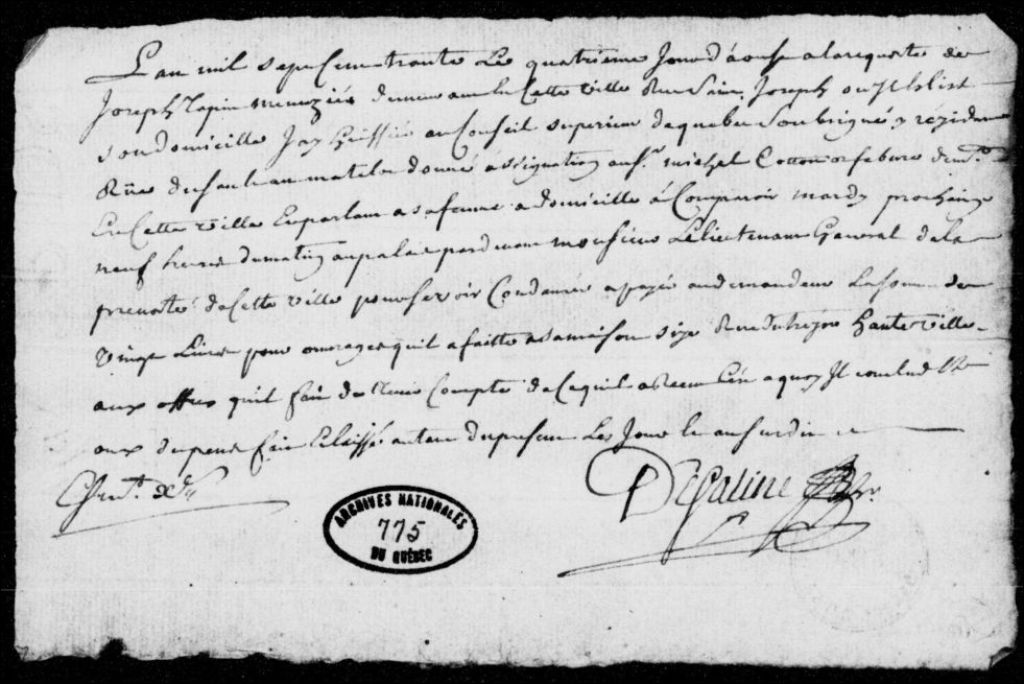 L'an mil sept Cent trente Le quatrieme Jour d'aoust a la requeste de
Joseph Lapin menuzier demeurant En Cette ville Rue Saint Joseph ou Il Elist
son domicille Jay huissier au Conseil superieur de quebec Soubsigné y rezidant
Rüe du sault au matelot donné assignation au Sr. michel Cotton orfebvre demt.
En Cette ville En parlant a sa femme a domicille à Comparoir mardy prochain
neuf heure du matin au palais pardevant monsieur Le lieutenant General de la
prevosté de Cette ville pour se voir Condamner a payer au demandeur La somme de
vingt Livre pour ouvrages qu'il a faitte a sa maison size Rue haute ville
aux offres quil fait de tenir Compte de Ce quil a Receu a quoy Il conclud Et
aux depens fait Et laissé autant du present Les Jour et an susdit
DeGatine
ARCHIVES NATIONALES
775
DU QUÉBEC